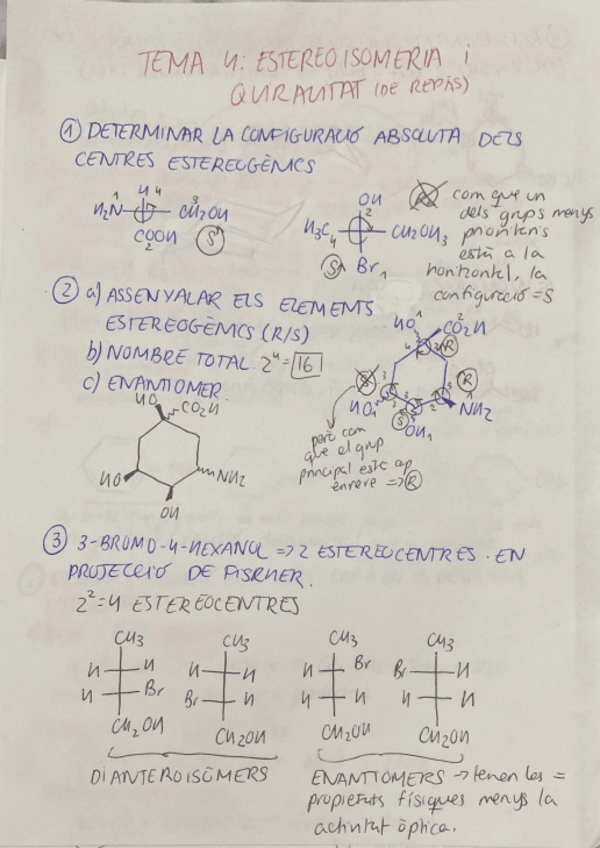 TEMA 4: ESTEREOISOMERIA i
QUIRALITAT (DE REPÀS)
① DETERMINAR LA CONFIGURACIÓ ABSOLUTA DELS
CENTRES ESTEREOGÈNICS
1 H 4
H2N CH2OH 3
COOH
2
S
OH
2
H3C 4 CH2OH 3
S Br 1
R com que un
dels grups menys
prioritaris
està a la
horitzontal, la
configuració = S
② a) ASSENYALAR ELS ELEMENTS
ESTEREOGÈNICS (R/S)
b) NOMBRE TOTAL. 2^4 = 16
c) ENANTIOMER.
HO CO2H
HO NH2
OH
HO 1 CO2H 2
R
R
HO 1 NH2 1
S
OH 1
però com
que el grup
principal està cap
enrere => R
③ 3-BROMO-4-HEXANOL => 2 ESTEREOCENTRES. EN
PROJECCIÓ DE FISRHER.
2² = 4 ESTEREOCENTRES
CH3 CH3 CH3 CH3
H H H H H Br Br H
H Br Br H H H H H
CH2OH CH2OH CH2OH CH2OH
DIANTEROISÒMERS
ENANTIOMERS → tenen les =
propietats físiques menys la
activitat òptica.